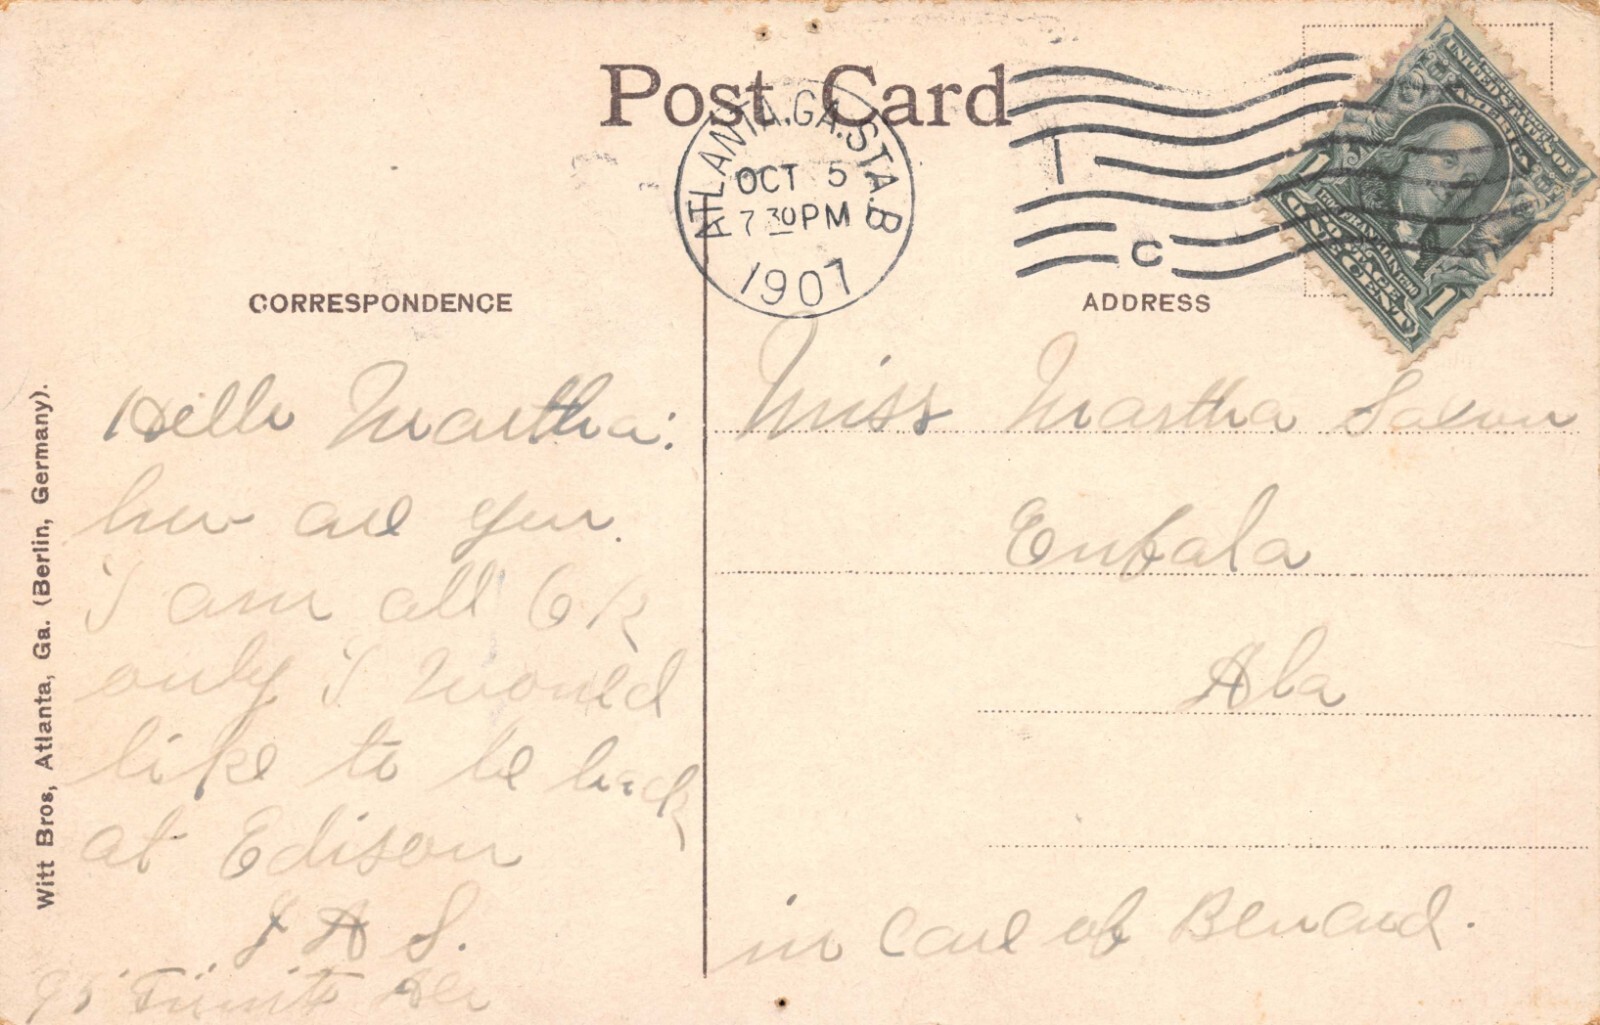 Post Card
ATLANTA, GA. STA. B
OCT 5
7 30 PM
1907
C
UNITED STATES OF AMERICA
FRANKLIN
POSTAGE
1 ONE CENT 1
CORRESPONDENCE
ADDRESS
Witt Bros, Atlanta, Ga. (Berlin, Germany).
Hello Martha:
how are you.
I am all OK
only I would
like to be back
at Edison
J A S.
95
Miss Martha Saxon
Eufala
Ala
in care of Benard.